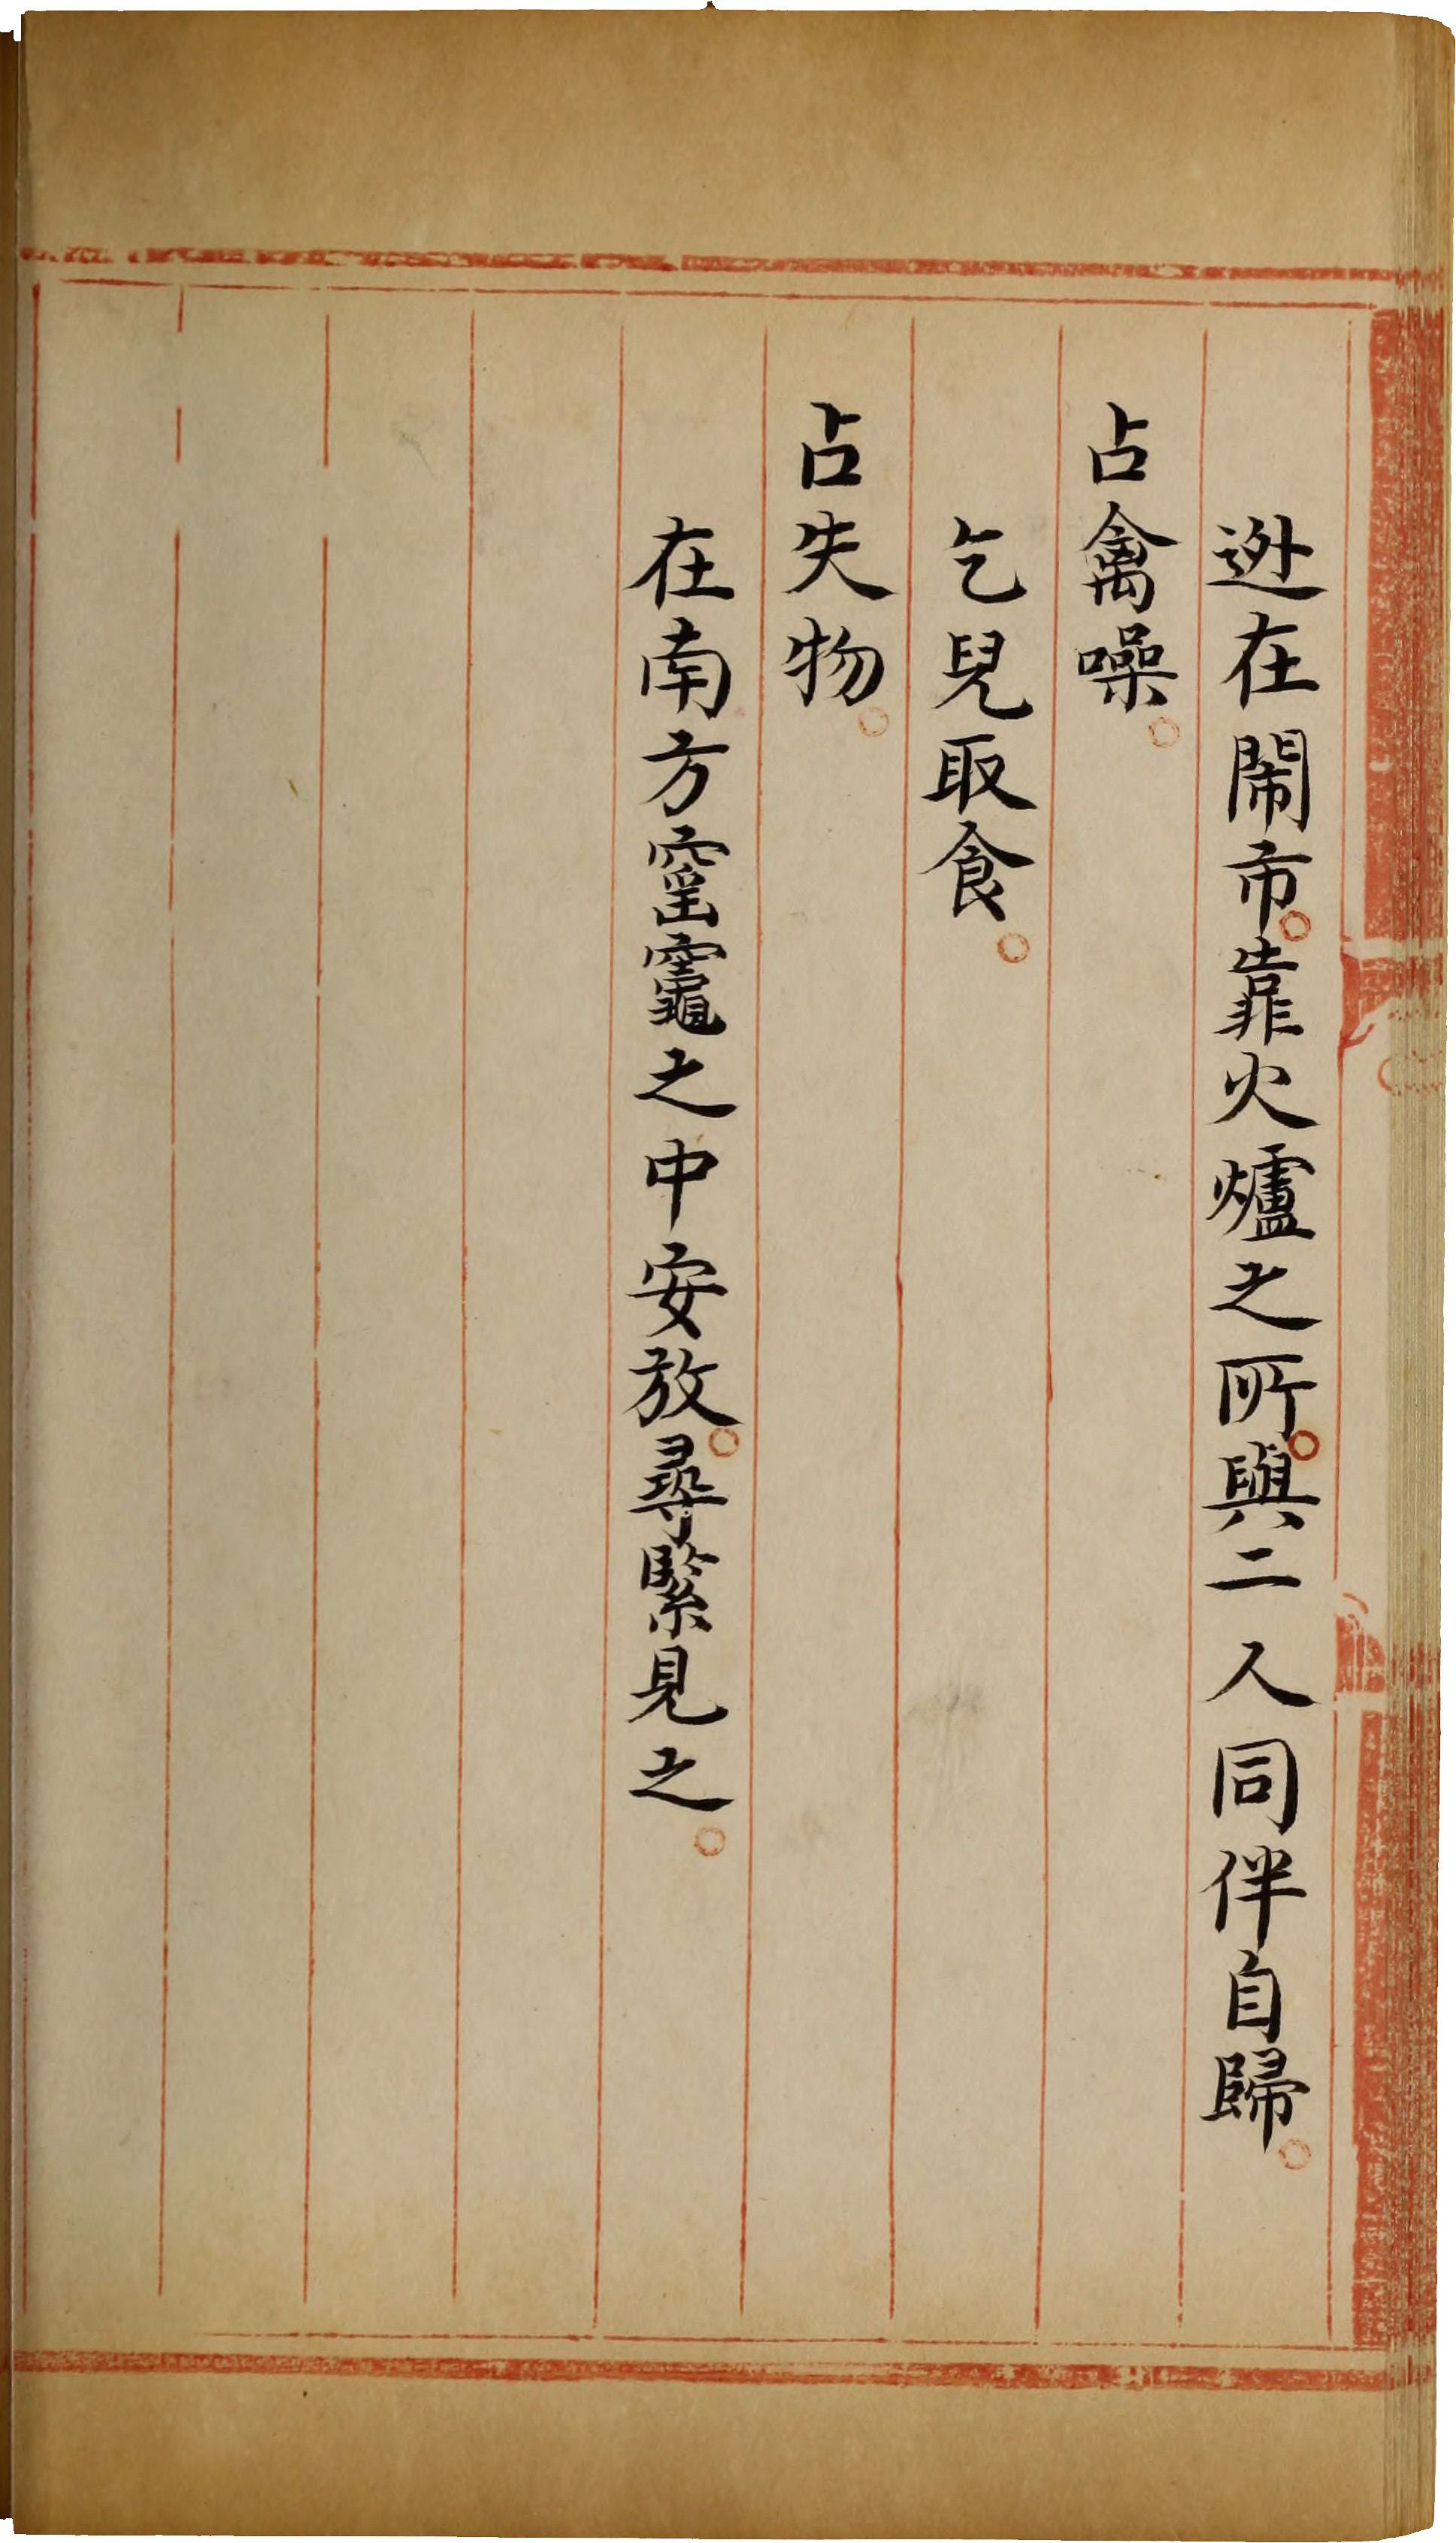 迯在鬧市。靠火爐之所。與二人同伴自歸。
占禽噪。
乞兒取食。
占失物。
在南方窰竈之中安放。尋緊見之。